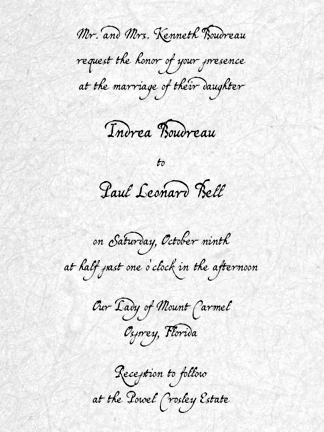 Mr. and Mrs. Kenneth Boudreau
request the honor of your presence
at the marriage of their daughter
Indrea Boudreau
to
Paul Leonard Bell
on Saturday, October ninth
at half past one o'clock in the afternoon
Our Lady of Mount Carmel
Osprey, Florida
Reception to follow
at the Powel Crosley Estate